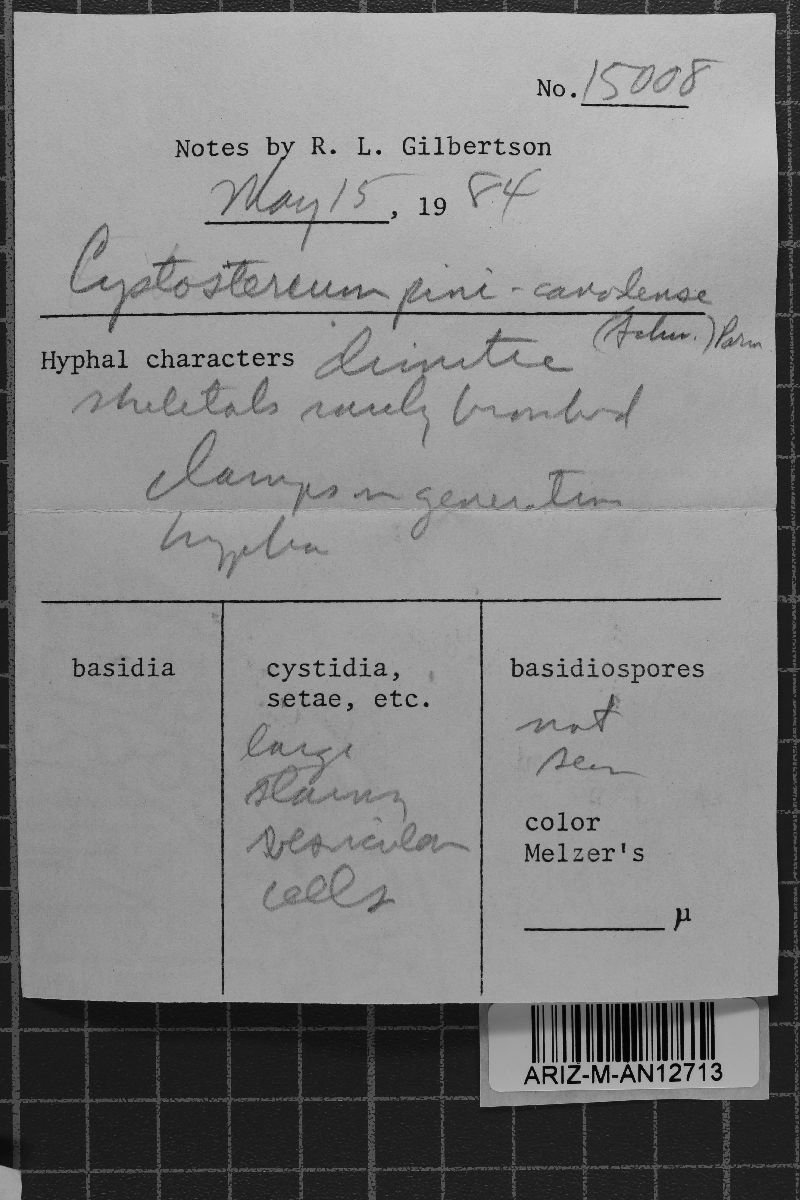 No. 15008
Notes by R. L. Gilbertson
May 15, 19 84
Cystostereum pini-canadense
(Schw.) Parm
Hyphal characters dimitic
skeletals rarely branched
clamps on generative
hypha
basidia
cystidia,
setae, etc.
large
staining
vesicular
cells
basidiospores
not
seen
color
Melzer's
µ
ARIZ-M-AN12713